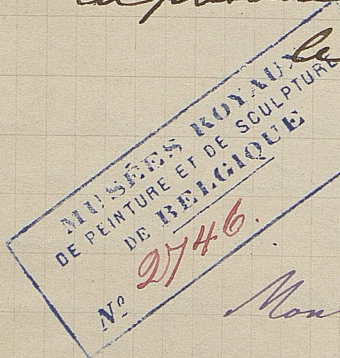 le
MUSÉES ROYAUX
DE PEINTURE ET DE SCULPTURE
DE BELGIQUE
Nº 2746.
Mon